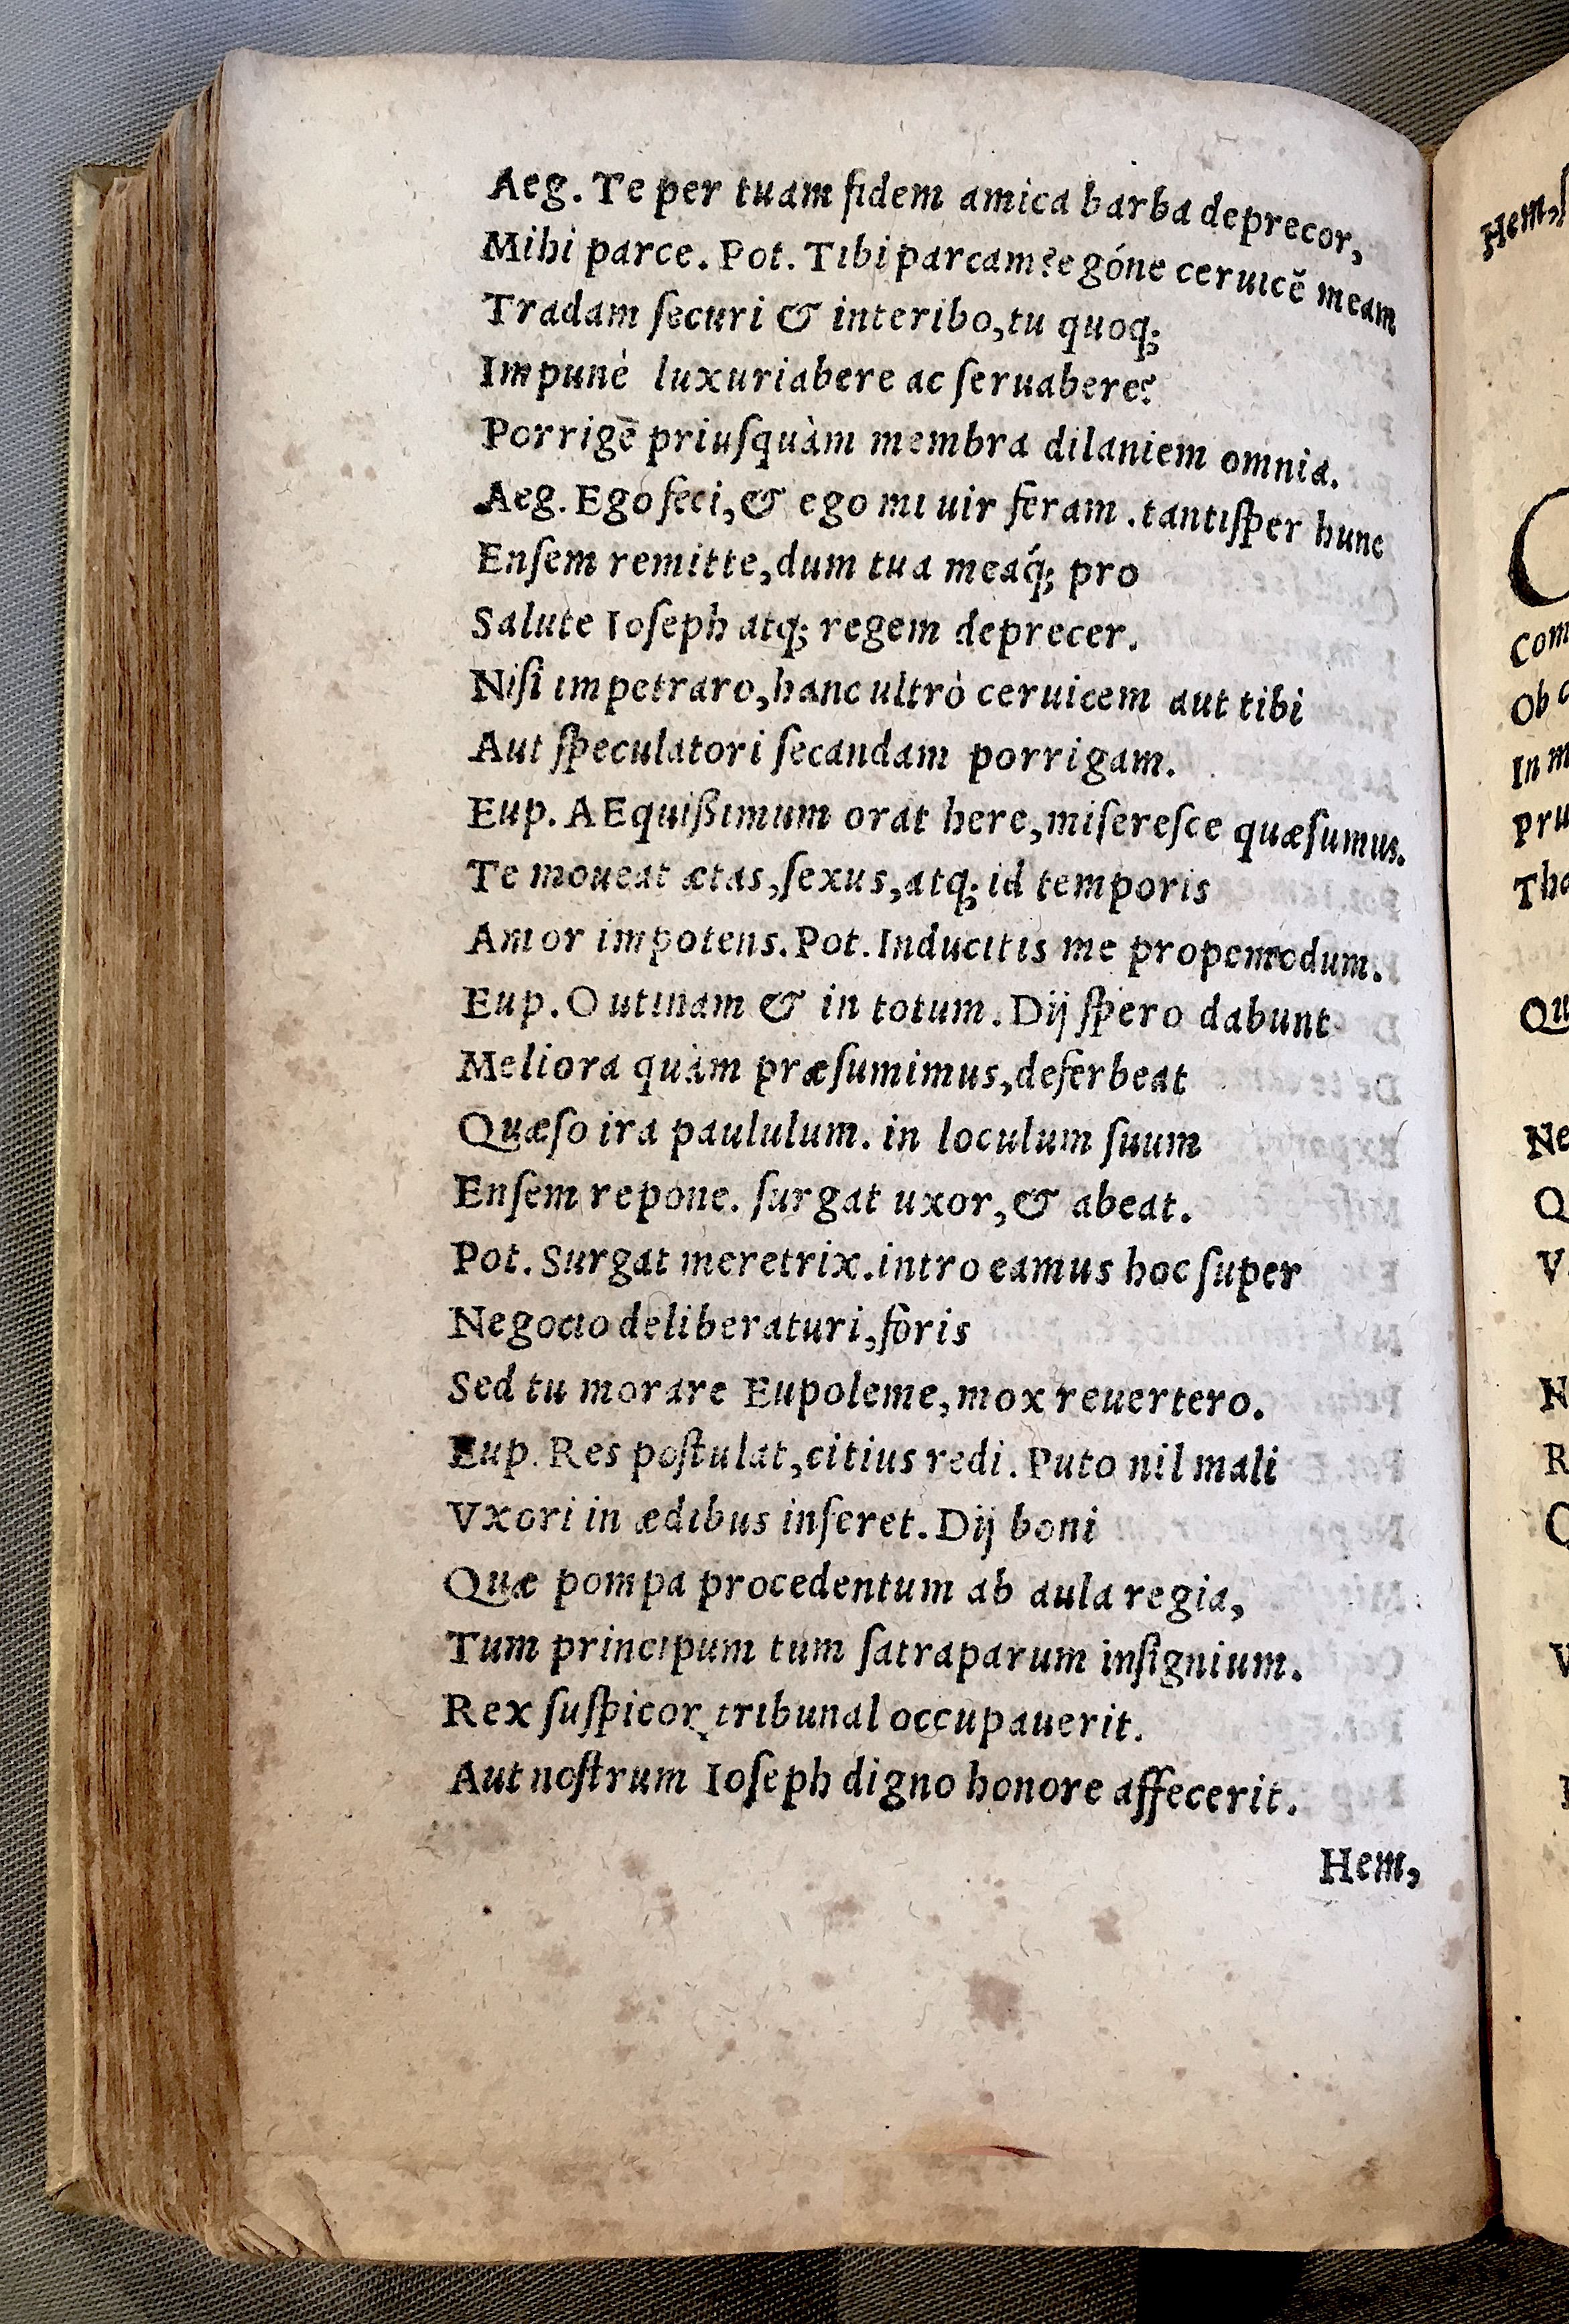 Aeg. Te per tuam fidem amica barba deprecor,
Mihi parce. Pot. Tibi parcam? egóne ceruicẽ meam
Tradam ſecuri & interibo, tu quoq;
Impunè luxuriabere ac ſeruabere?
Porrigẽ priuſquàm membra dilaniem omnia.
Aeg. Ego feci, & ego mi uir feram. tantiſper hunc
Enſem remitte, dum tua meáq; pro
Salute Ioſeph atq; regem deprecer.
Niſi impetraro, hanc ultrò ceruicem aut tibi
Aut ſpeculatori ſecandam porrigam.
Eup. AEquißimum orat here, miſereſce quæſumus.
Te moueat ætas, ſexus, atq; id temporis
Amor impotens. Pot. Inducitis me propemodum.
Eup. O utinam & in totum. Dij ſpero dabunt
Meliora quàm præſumimus, deferbeat
Quæſo ira paululum. in loculum ſuum
Enſem repone. ſurgat uxor, & abeat.
Pot. Surgat meretrix. intro eamus hoc ſuper
Negocio deliberaturi, foris
Sed tu morare Eupoleme, mox reuertero.
Eup. Res poſtulat, citius redi. Puto nil mali
Vxori in ædibus inferet. Dij boni
Quæ pompa procedentum ab aula regia,
Tum principum tum ſatraparum inſignium.
Rex ſuſpicor tribunal occupauerit.
Aut noſtrum Ioſeph digno honore affecerit.
Hem,
Hem,
Com
Ob
In m
Pru
Tha
Qu
Ne
Q
V
N
R